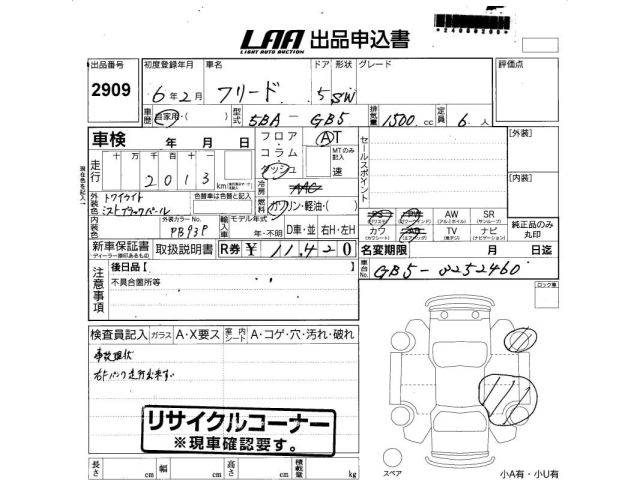 LAA 出品申込書
LIGHT AUTO AUCTION
出品番号 初度登録年月 車名 ドア 形状 グレード 評価点
2909 6年2月 フリード 5 SW
車歴 自家用・( ) 型式 5BA-GB5 排気量 1500 cc 定員 6人
車検 年 月 日 フロア・コラム・ダッシュ AT MTのみ記入 速 セールスポイント 【外装】
走行 十 万 千 百 十 2013 km 冷房 AAC
【内装】
外装色 トワイライトミストブラックパール 色替車は色替と記入 燃料 ガソリン・軽油・( )
内装色 外装カラーNo. PB93P 輸入車 モデル年式 年・不明 D車・並 右H・左H
PS (パワステ) PW (パワーウインド) AW (アルミホイル) SR (サンルーフ)
カワ (カワシート) TV (電ナビ) ナビ (ナビゲーション)
純正品のみ丸印
現在色を記入
新車保証書 取扱説明書 R券 ¥ 11,420 名変期限 月 日迄
ディーラー捺印あるもの
車台No. GB5-3252460
注意事項 後日品【
不具合箇所等
ロック車
検査員記入 ガラス A・X要ス 室内シート A・コゲ・穴・汚れ・破れ
事故現状
リサイクルコーナー
※現車確認要す。
長さ cm 幅 cm 高さ cm 積載量 kg
スペア
小A有・小U有